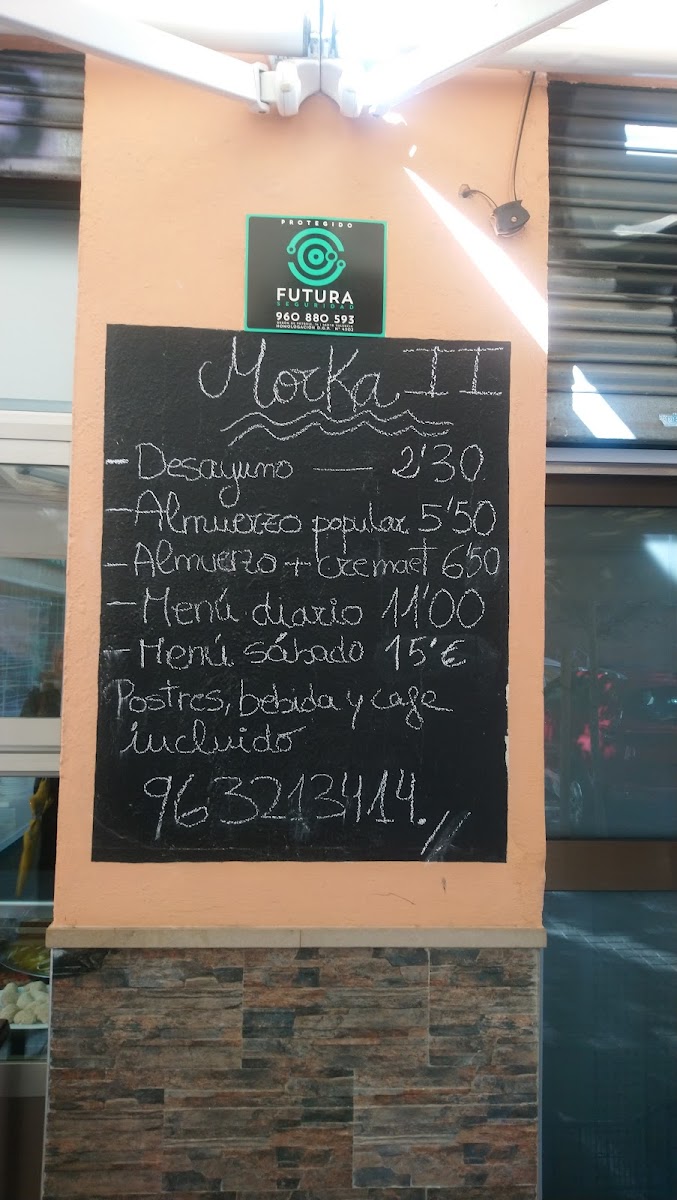 PROTEGIDO
FUTURA
SEGURIDAD
960 880 593
HOMOLOGACIÓN D.G.P. Nº 4302
Morka II
- Desayuno — 2'30
- Almuerzo popular 5'50
- Almuerzo + Cremaet 6'50
- Menú diario 11'00
- Menú sábado 15'€
Postres, bebida y cafe
incluido
963213414.